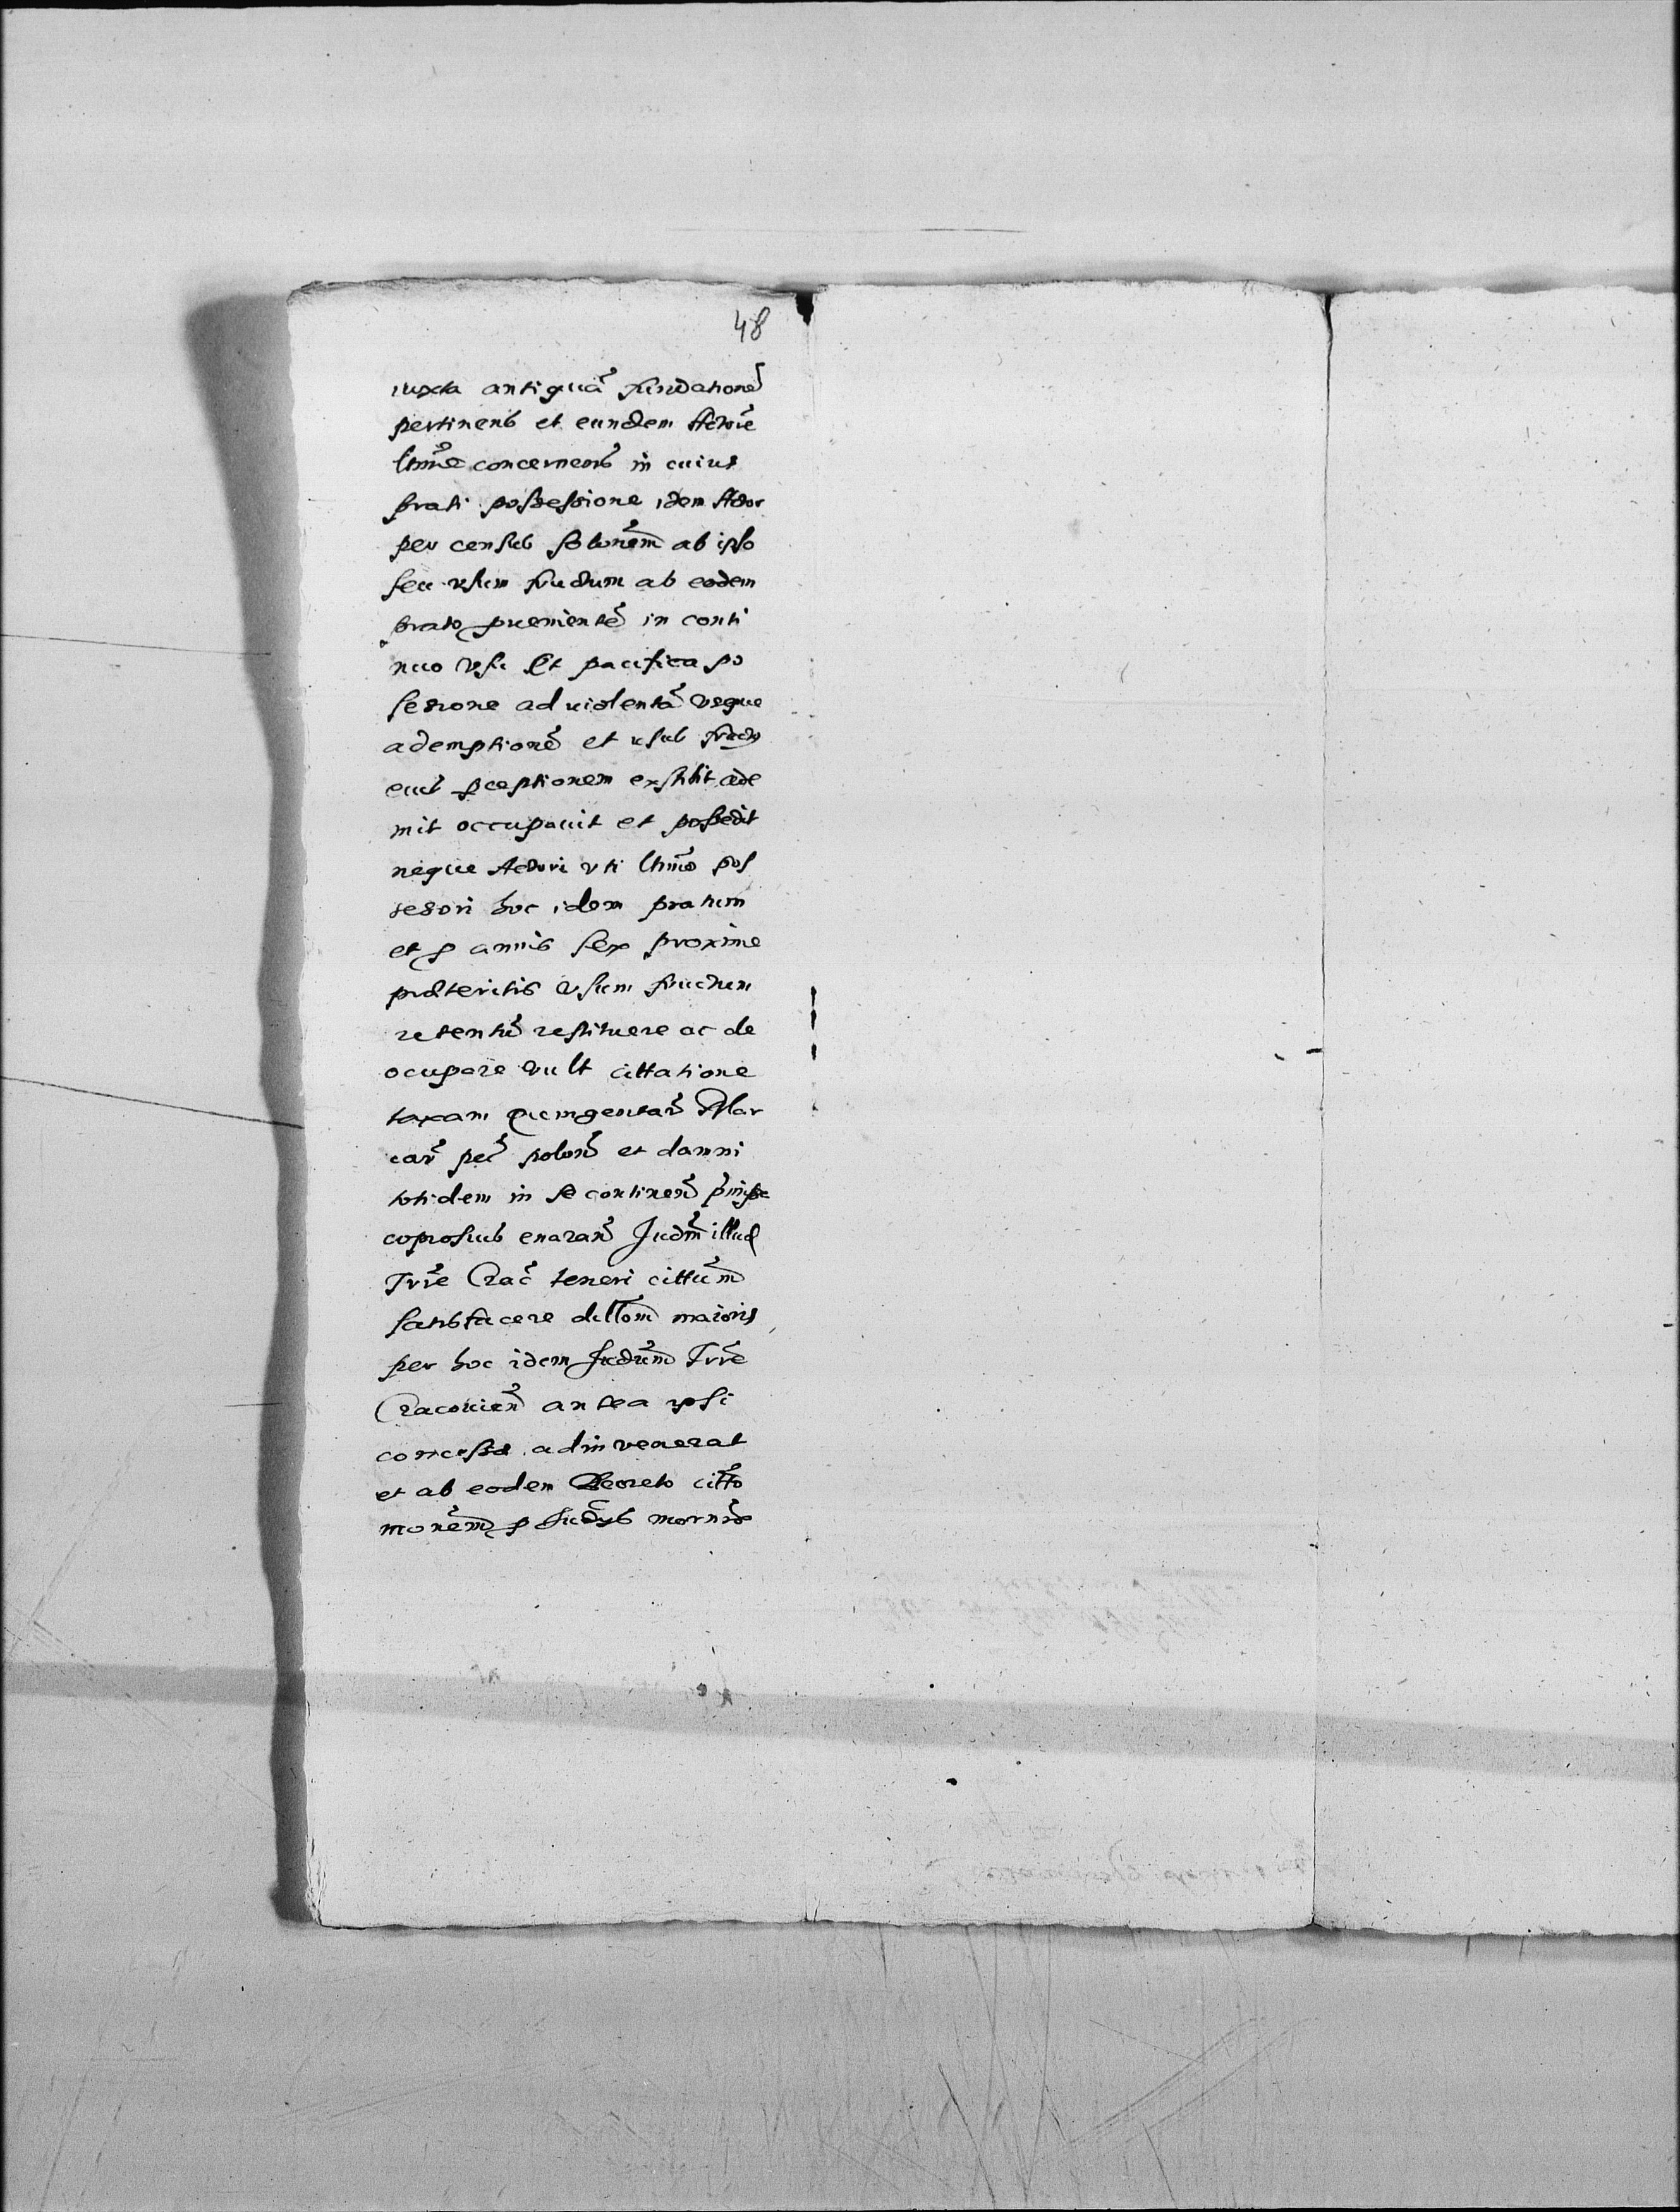 48
iuxta antiquã fundationẽ
pertinens et eundem Actorẽ
lttimẽ concernens in cuius
prati possessione idem Actor
per census solutionem ab ipso
seu usum fructum ab eodem
prato puenientẽ in conti
nuo usu et pacifica po
sessione ad uiolentã usque
ademptionẽ et usus fructus
eius pceptionem exstitit ade
mit occupauit et possedit
neque Actori uti lttimo pos
sessori hoc idem pratum
et p annis sex proxime
præteritis usum fructum
retentũ restituere ac de
ocupare uult cittatione
taxam quingentarũ Mar
carũ pecũ polon et damni
totidem in se continen
copiosius enaran Judm illud
Trre Crac teneri cittum
satisfacere maioris
per hoc idem Judium Trre
Cracouien antea ipsi
concessæ adinvenerat
et ab eodem Decreto citto